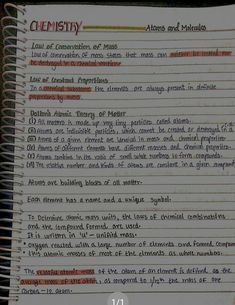 CHEMISTRY Atoms and Molecules
Law of Conservation of Mass
Law of conservation of mass states that mass can neither be created nor
be destroyed in a chemical reaction
Law of Constant Proportions
In a chemical substance the elements are always present in definite
proportions by mass
Dalton's Atomic Theory of Matter
(1) All matter is made up very tiny particles called atoms.
(2) Atoms are indivisible particles, which cannot be created or destroyed in a
(3) Atoms of a given element are identical in mass and chemical properties.
(4) Atoms of different elements have different masses and chemical properties.
(5) Atoms combine in the ratio of small whole numbers to form compounds.
(6) The relative number and kinds of atoms are constant in a given compound
Atoms are building blocks of all matter.
Each element has a name and a unique symbol.
To Determine atomic mass unit, the laws of chemical combination
and the compound formed are used.
It is written in 'u' - unified mass.
Oxygen reacted with a large number of elements and formed compounds
This atomic masses of most of the elements as whole numbers.
The relative atomic mass of the atom of an element is defined as the
average mass of the atom, as compared to 1/12th the mass of one
Carbon-12 atom.
1/1